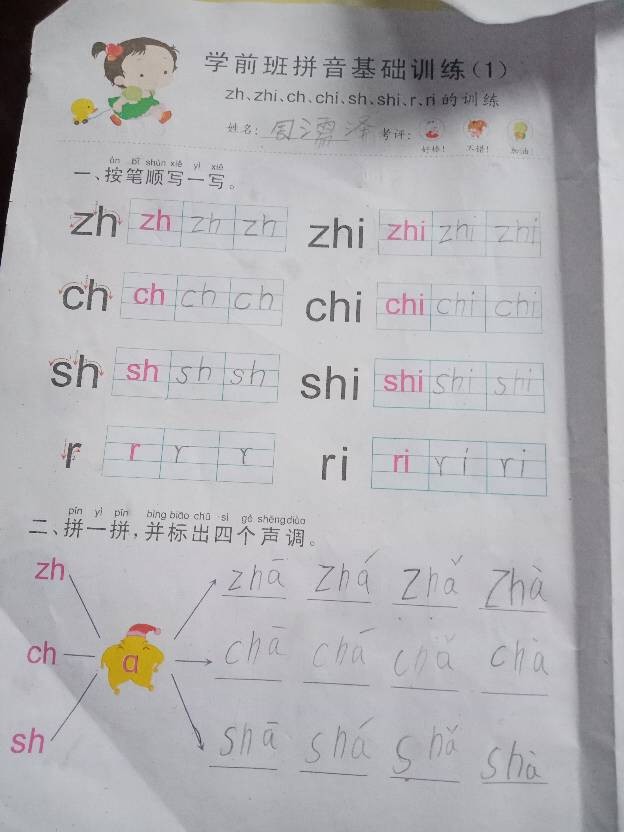 学前班拼音基础训练(1)
zh、zhi、ch、chi、sh、shi、r、ri 的训练
姓名: 周 泽 考评:
好棒! 不错! 加油!
àn bǐ shùn xiě yì xiě
一、按笔顺写一写。
zh zh zh zh zhi zhi zhi zhi
ch ch ch ch chi chi chi chi
sh sh sh sh shi shi shi shi
r r r r ri ri ri ri
pīn yì pīn bìng biāo chū sì gè shēng diào
二、拼一拼,并标出四个声调。
zh zhā zhá zhǎ zhà
ch a chā chá chǎ chà
sh shā shá shǎ shà